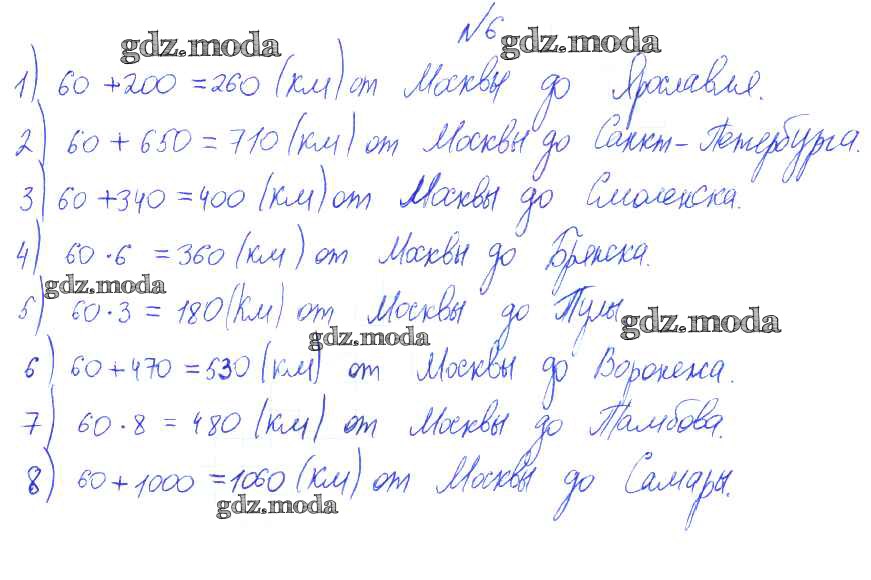 №6
gdz.moda gdz.moda
1) 60 + 200 = 260 (км) от Москвы до Ярославля.
2) 60 + 650 = 710 (км) от Москвы до Санкт-Петербурга.
3) 60 + 340 = 400 (км) от Москвы до Смоленска.
4) 60 · 6 = 360 (км) от Москвы до Брянска.
gdz.moda
5) 60 · 3 = 180 (км) от Москвы до Тулы
gdz.moda gdz.moda
6) 60 + 470 = 530 (км) от Москвы до Воронежа.
7) 60 · 8 = 480 (км) от Москвы до Тамбова.
8) 60 + 1000 = 1060 (км) от Москвы до Самары.
gdz.moda